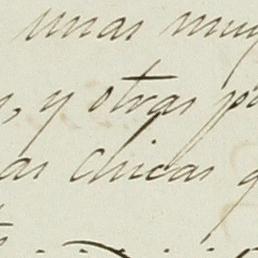 unas muy
y otras
as chicas q